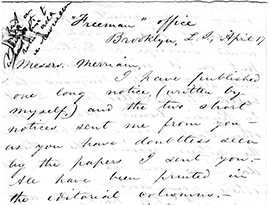 "Freeman" office
Brooklyn, L. I., April 17
Messrs. Merriam,
I have published
one long notice, (written by
myself,) and the two short
notices sent me from you —
as you have doubtless seen
by the papers I sent you. —
All have been printed in
the editorial columns. —